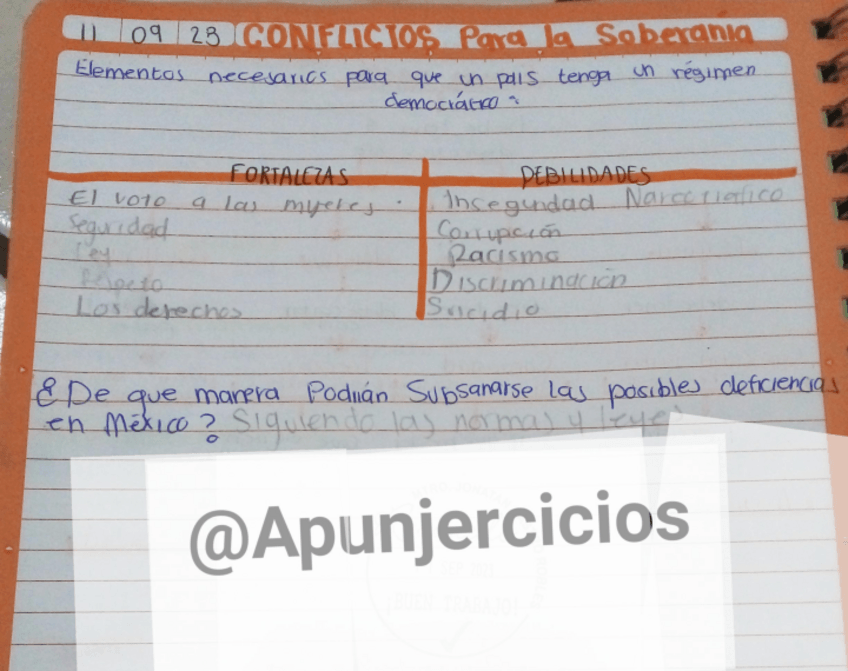 11 09 23 CONFLICTOS Para la Soberanía
Elementos necesarios para que un país tenga un régimen
democrático:
FORTALEZAS DEBILIDADES
El voto a las mujeres. Inseguridad Narcotráfico
Seguridad Corrupción
Ley Racismo
Respeto Discriminación
Los derechos Suicidio
¿De que manera Podrián Subsanarse las posibles deficiencias
en México? Siguiendo las normas y leyes
@Apunjercicios